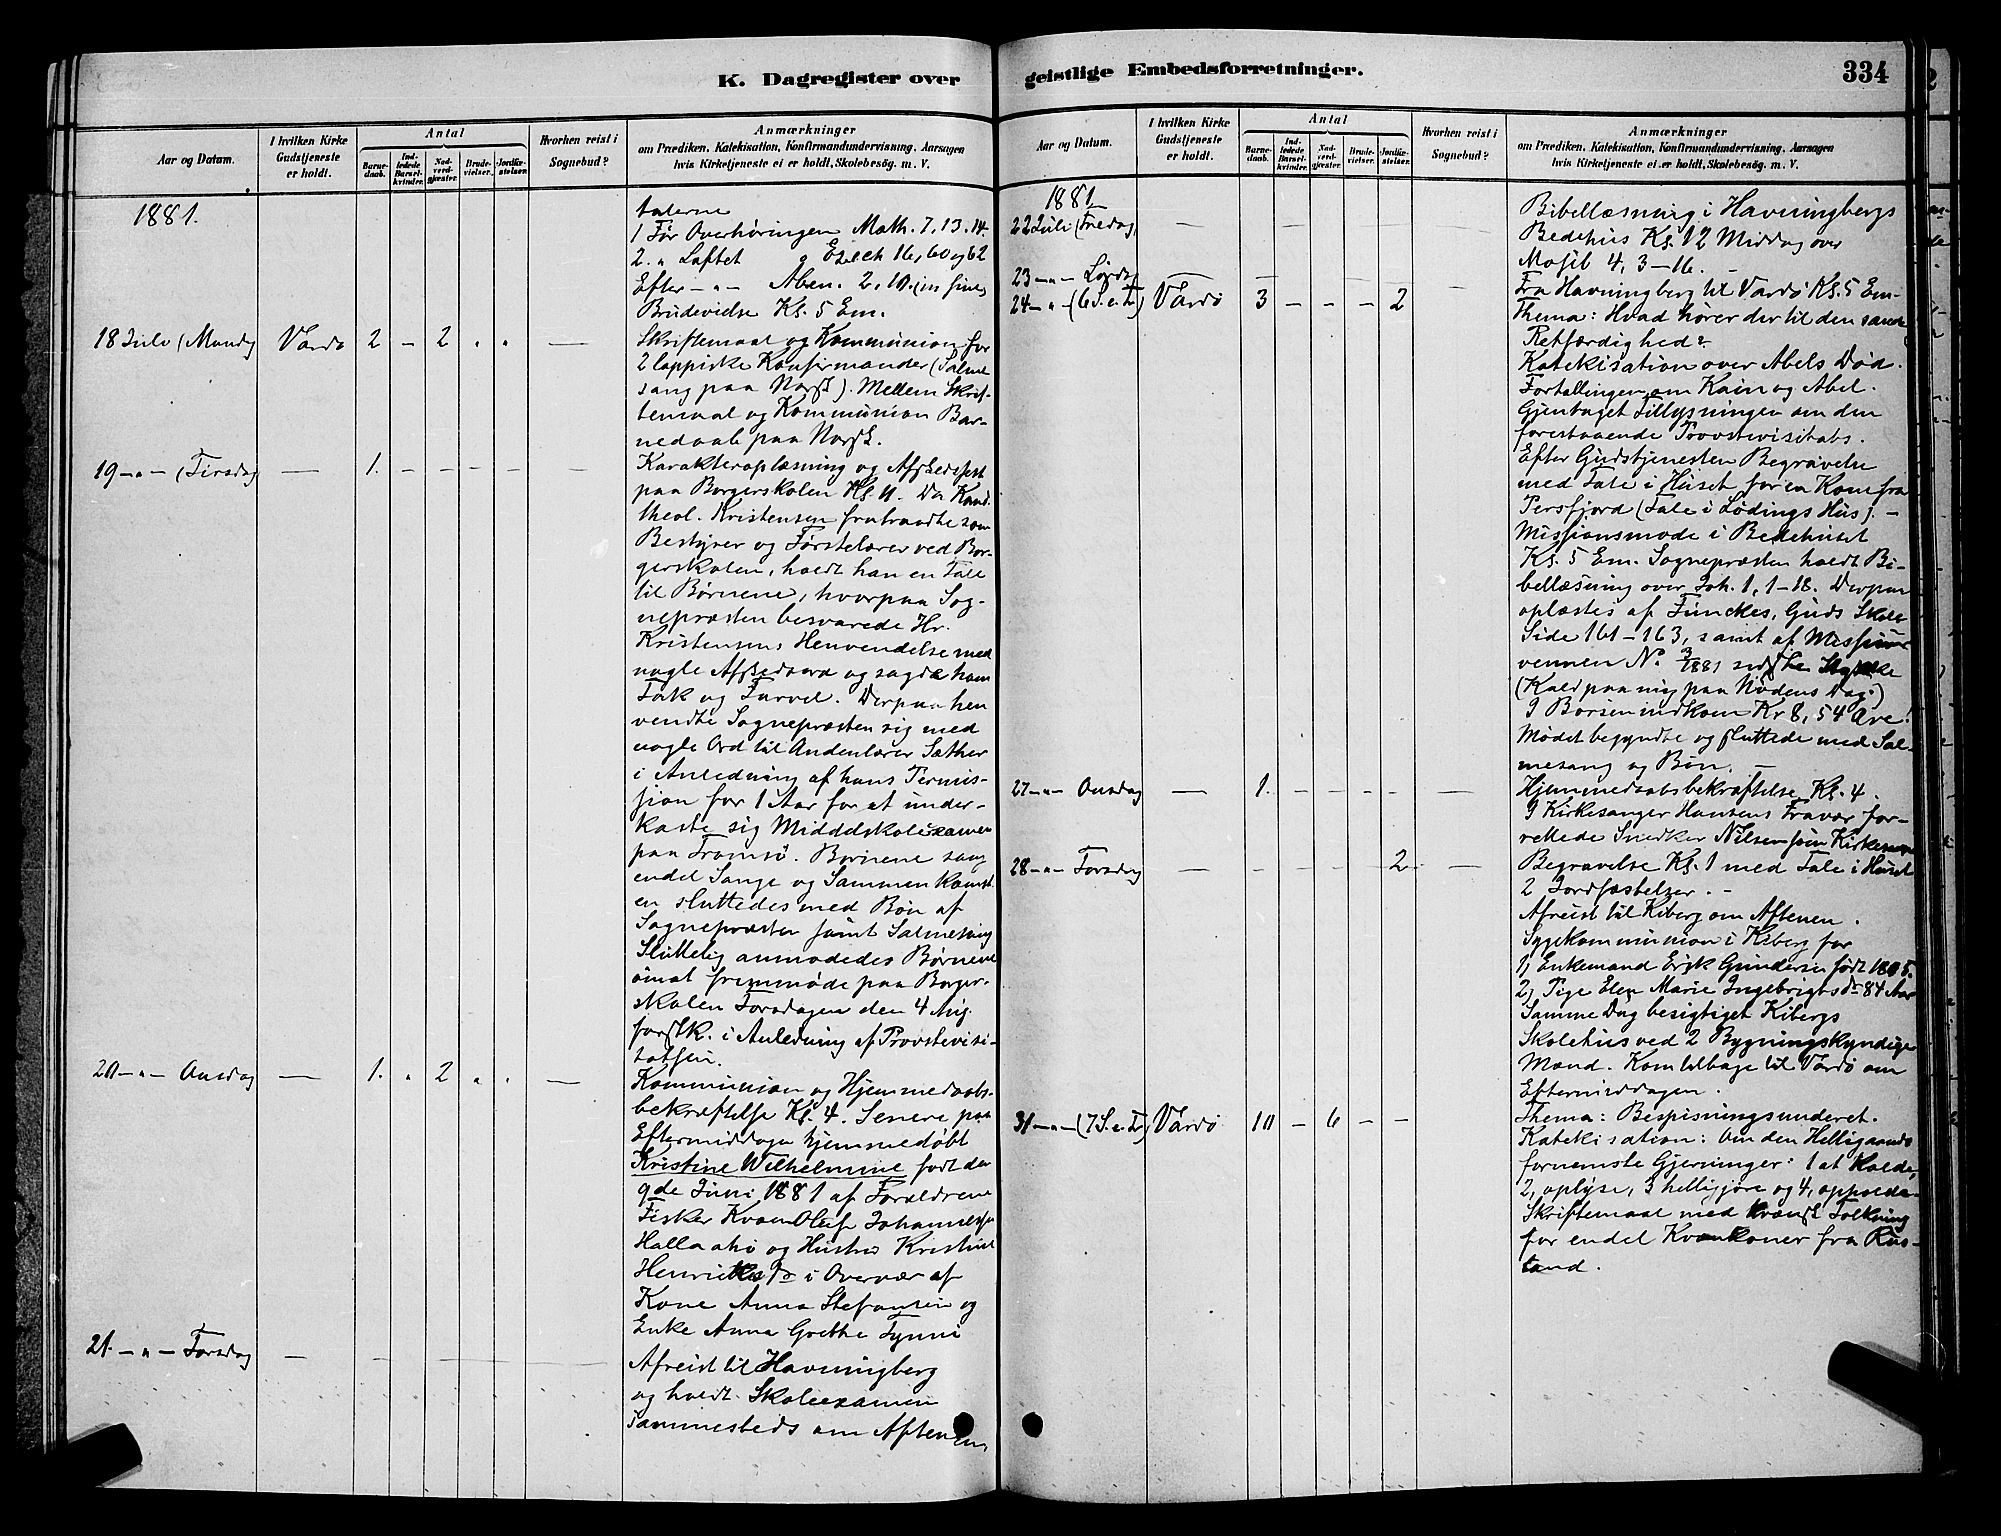 K. Dagregister over
Aar og Datum.
I hvilken Kirke Gudstjeneste er holdt.
Antal
Barnedaab.
Indledede Barselkvinder.
Nadverdgjæster.
Brudevielser.
Jordfæstelser.
Hvorhen reist i Sognebud?
Anmærkninger
om Prædiken, Katekisation, Konfirmandundervisning, Aarsagen
hvis Kirketjeneste ei er holdt, Skolebesøg. m. V.
1881.
talerne
1 Før Overhøringen Math. 7, 13. 14.
2. " Løftet og Ezech 16, 60 og 62
Efter - " - Aben. 2, 10. (in fine)
Brudevielse Kl. 5 Em.
18 Juli (Mandag Vardø 2 - 2 " " —
Skriftemaal og Kommunion for
2 lappiske Konfirmander (Salme
sang paa Norsk). Mellem Skrif-
temaal og Kommunion Bar-
nedaab paa Norsk.
19 - " - (Tirsdag — 1. - - - - —
Karakteroplæsning og Afskedsfest
paa Borgerskolen Kl. 11. Da Kand.
theol. Kristensen fratraadte som
Bestyrer og Førstelærer ved Bor-
gerskolen, holdt han en Tale
til Børnene, hvorpaa Sog-
nepræsten besvarede Hr.
Kristensens Henvendelse med
nogle Afskedsord og sagde ham
Tak og Farvel. Derpaa hen
vendte Sognepræsten sig med
nogle Ord til Andenlærer Sæther
i Anledning af hans Permis-
sion for 1 Aar for at under-
kaste sig Middelskolexamen
paa Tromsø. Børnene sang
endel Sange og Sammenkomst
en sluttedes med Bøn af
Sognepræsten samt Salmesang
Sluttelig anmodedes Børnene
om at fremmøde paa Borger-
skolen Torsdagen den 4 Aug.
førstk. i Anledning af Provstevisi-
tatsen.
20 - " - Onsdag — 1. " 2 " " —
Kommunion og Hjemmedaabs-
bekræftelse Kl. 4. Senere paa
Eftermiddagen hjemmedøbt
Kristine Wilhelmine født den
9de Juni 1881 af Forældrene
Fisker Kvæn Oluf Johannessen
Hallaaho og Hustru Kristine
Henriks Dr i Overvær af
Kone Anna Stefansen og
Enke Anna Grethe Tynni
21. - " - Torsdag — - - - - - —
Afreist til Havningberg
og holdt Skoleexamen
sammesteds om Aftenen.
geistlige Embedsforretninger.
334
Aar og Datum.
I hvilken Kirke Gudstjeneste er holdt.
Antal
Barnedaab.
Indledede Barselkvinder.
Nadverdgjæster.
Brudevielser.
Jordfæstelser.
Hvorhen reist i Sognebud?
Anmærkninger
om Prædiken, Katekisation, Konfirmandundervisning, Aarsagen
hvis Kirketjeneste ei er holdt, Skolebesøg. m. V.
1881
22 Juli (Fredag — - - - - - —
Bibellæsning i Havningbergs
Bedehus Kl. 12 Middag over
Mosib 4, 3-16. -
23 - " - Lørdag — - - - - -
Fra Havningberg til Vardø Kl. 5 Em-
24 - " (6 S. e. Tr) Vardø 3 - - - 2 —
Thema: Hvad hører der til den sande
Retfærdighed?
Katekisation over Abels Død.
Fortællingen om Kain og Abel.
Gjentaget Tillysningen om den
forestaaende Provstevisitats.
Efter Gudstjenesten Begravelse
med Tale i Huset for en Kone fra
Persfjord (Tale i Lødings Hus). -
Missionsmøde i Bedehuset
Kl. 5 Em. Sognepræsten holdt Bi-
bellæsning over Joh. 1, 1-18. Derpaa
oplæstes af Funckes, Guds Skole
Side 161-163, samt af Missions
vennen No. 3/1881 sidste Stykke
(Kald paa mig paa Nødens Dag.)
I Bøssen indkom Kr 8,54 Øre!
Mødet begyndte og sluttede med Sal-
mesang og Bøn. -
27 - " - Onsdag — 1. - - - - —
Hjemmedaabsbekræftelse Kl. 4.
I Kirkesanger Hansens Fravær for-
rettede Snedker Nilsen som Kirkesanger
28 - " - Torsdag — - - - - 2 —
Begravelse Kl. 1 med Tale i Huset
2 Jordfæstelser. -
Afreist til Kiberg om Aftenen.
Sygekommunion i Kiberg for
1, Enkemand Erik Gundersen født 1805.
2, Pige Elen Marie Ingebrigts Dr 84 Aar
Samme Dag besigtiget Kibergs
Skolehus ved 2 Bygningskyndige
Mænd. Kom tilbage til Vardø om
Eftermiddagen.
31 - " - (7 S. e. Tr) Vardø 10 - 6 - -
Thema: Bespisningsunderet.
Katekisation: Om den Helligaands
fornemste Gjerninger: 1 at kalde,
2, oplyse, 3 helligjøre og 4, opholde.
Skriftemaal med kvænsk Tolkning
for endel Kvænkoner fra Rus-
land.